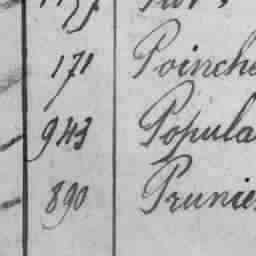 171 Poinche
943 Popula
890 Prunie